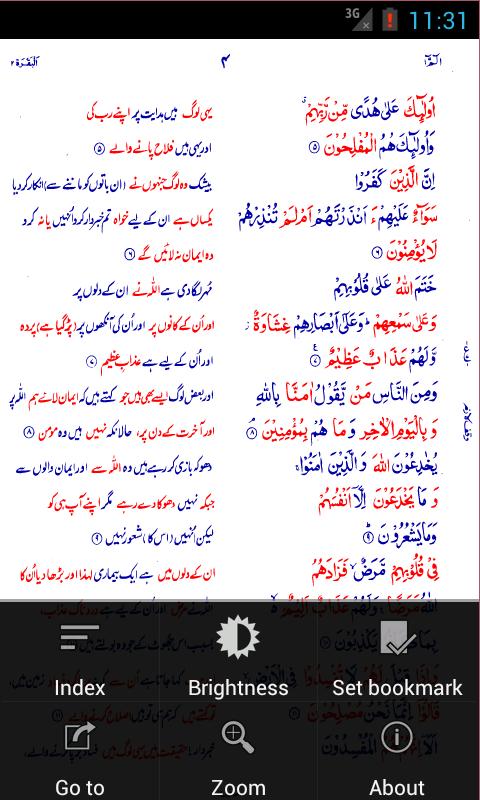 3G 11:31
الٓمّٓ ١ ۴ اَلْبَقَرَة ٢
اُولٰٓئِكَ عَلٰى هُدًى مِّنْ رَّبِّهِمْ یہی لوگ ہیں ہدایت پر اپنے رب کی
وَاُولٰٓئِكَ هُمُ الْمُفْلِحُوْنَ ⑤ اور یہی ہیں فلاح پانے والے ⑤
اِنَّ الَّذِيْنَ كَفَرُوْا بیشک وہ لوگ جنہوں نے (ان باتوں کو ماننے سے) انکار کر دیا
سَوَآءٌ عَلَيْهِمْ ءَاَنْذَرْتَهُمْ اَمْ لَمْ تُنْذِرْهُمْ یکساں ہے ان کے لیے خواہ تم خبردار کرو انہیں یا نہ کرو
لَا يُؤْمِنُوْنَ ⑥ وہ ایمان نہ لائیں گے ⑥
خَتَمَ اللّٰهُ عَلٰى قُلُوْبِهِمْ مُہر لگا دی ہے اللہ نے ان کے دلوں پر
وَعَلٰى سَمْعِهِمْ ؕ وَعَلٰٓى اَبْصَارِهِمْ غِشَاوَةٌ اور اُن کے کانوں پر اور اُن کی آنکھوں پر (پڑ گیا ہے) پردہ
وَّلَهُمْ عَذَابٌ عَظِيْمٌ ⑦ اور اُن کے لیے ہے عذابِ عظیم ⑦
وَمِنَ النَّاسِ مَنْ يَّقُوْلُ اٰمَنَّا بِاللّٰهِ اور بعض لوگ ایسے بھی ہیں جو کہتے ہیں کہ ایمان لائے ہم اللہ پر
وَ بِالْيَوْمِ الْاٰخِرِ وَمَا هُمْ بِمُؤْمِنِيْنَ ⑧ اور آخرت کے دن پر، حالانکہ نہیں ہیں وہ مومن ⑧
يُخٰدِعُوْنَ اللّٰهَ وَ الَّذِيْنَ اٰمَنُوْا دھوکہ بازی کر رہے ہیں وہ اللہ سے اور ایمان والوں سے
وَ مَا يَخْدَعُوْنَ اِلَّآ اَنْفُسَهُمْ جبکہ نہیں دھوکا دے رہے مگر اپنے آپ ہی کو
وَمَا يَشْعُرُوْنَ ⑨ لیکن اُنہیں (اس کا) شعور نہیں ⑨
فِىْ قُلُوْبِهِمْ مَّرَضٌ فَزَادَهُمُ ان کے دلوں میں ہے ایک بیماری لہٰذا اور بڑھا دیا اُن کا
اللّٰهُ مَرَضًا وَلَهُمْ عَذَابٌ اَلِيْمٌ
Index Brightness Set bookmark
Go to Zoom About